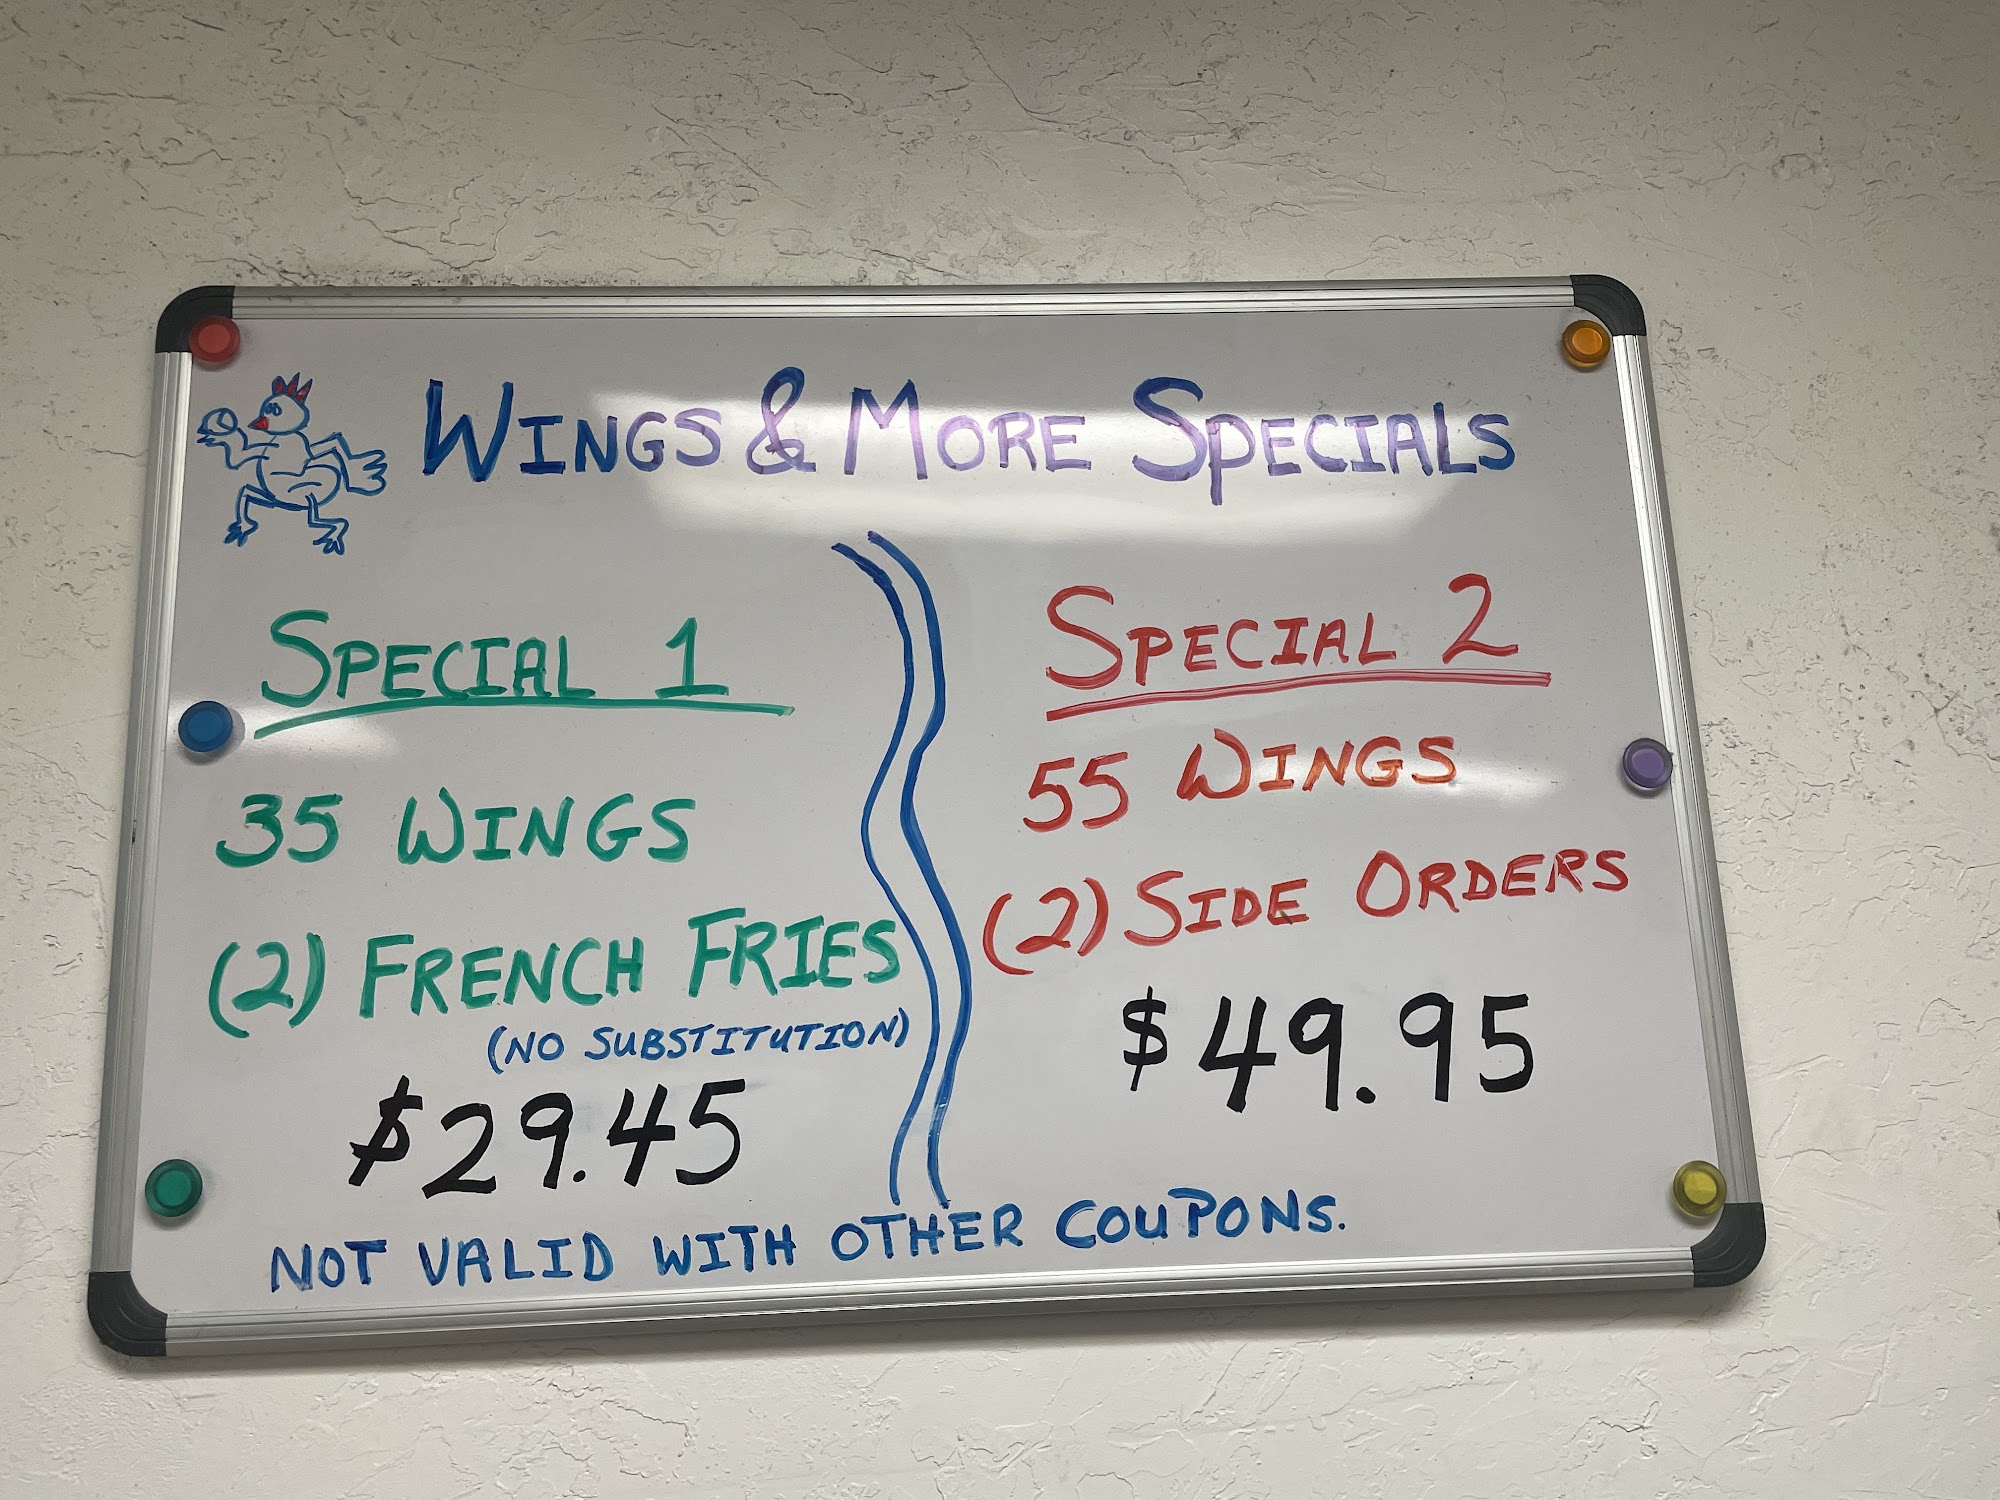 WINGS & MORE SPECIALS
SPECIAL 1
35 WINGS
(2) FRENCH FRIES
(NO SUBSTITUTION)
$29.45
SPECIAL 2
55 WINGS
(2) SIDE ORDERS
$49.95
NOT VALID WITH OTHER COUPONS.